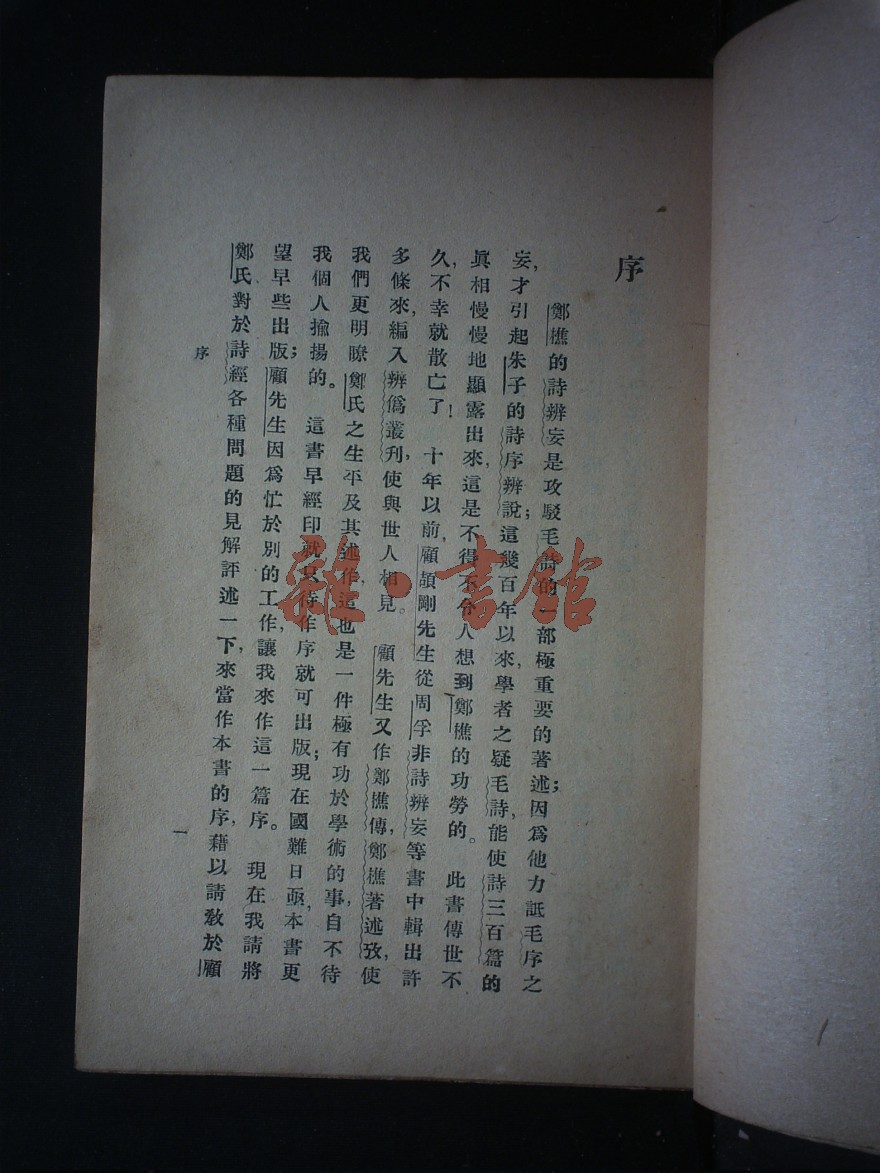 序
鄭樵的詩辨妄是攻駁毛詩的一部極重要的著述；因爲他力詆毛序之
妄，才引起朱子的詩序辨說；這幾百年以來，學者之疑毛詩，能使詩三百篇的
眞相慢慢地顯露出來，這是不得不令人想到鄭樵的功勞的。此書傳世不
久，不幸就散亡了！十年以前，顧頡剛先生從周孚非詩辨妄等書中輯出許
多條來，編入辨僞叢刊，使與世人相見。顧先生又作鄭樵傳，鄭樵著述攷，使
我們更明瞭鄭氏之生平及其述作，這也是一件極有功於學術的事，自不待
我個人揄揚的。這書早經印就，只待作序就可出版；現在國難日亟，本書更
望早些出版；顧先生因爲忙於別的工作，讓我來作這一篇序。現在我請將
鄭氏對於詩經各種問題的見解評述一下，來當作本書的序，藉以請敎於顧
序
一
雜·書館